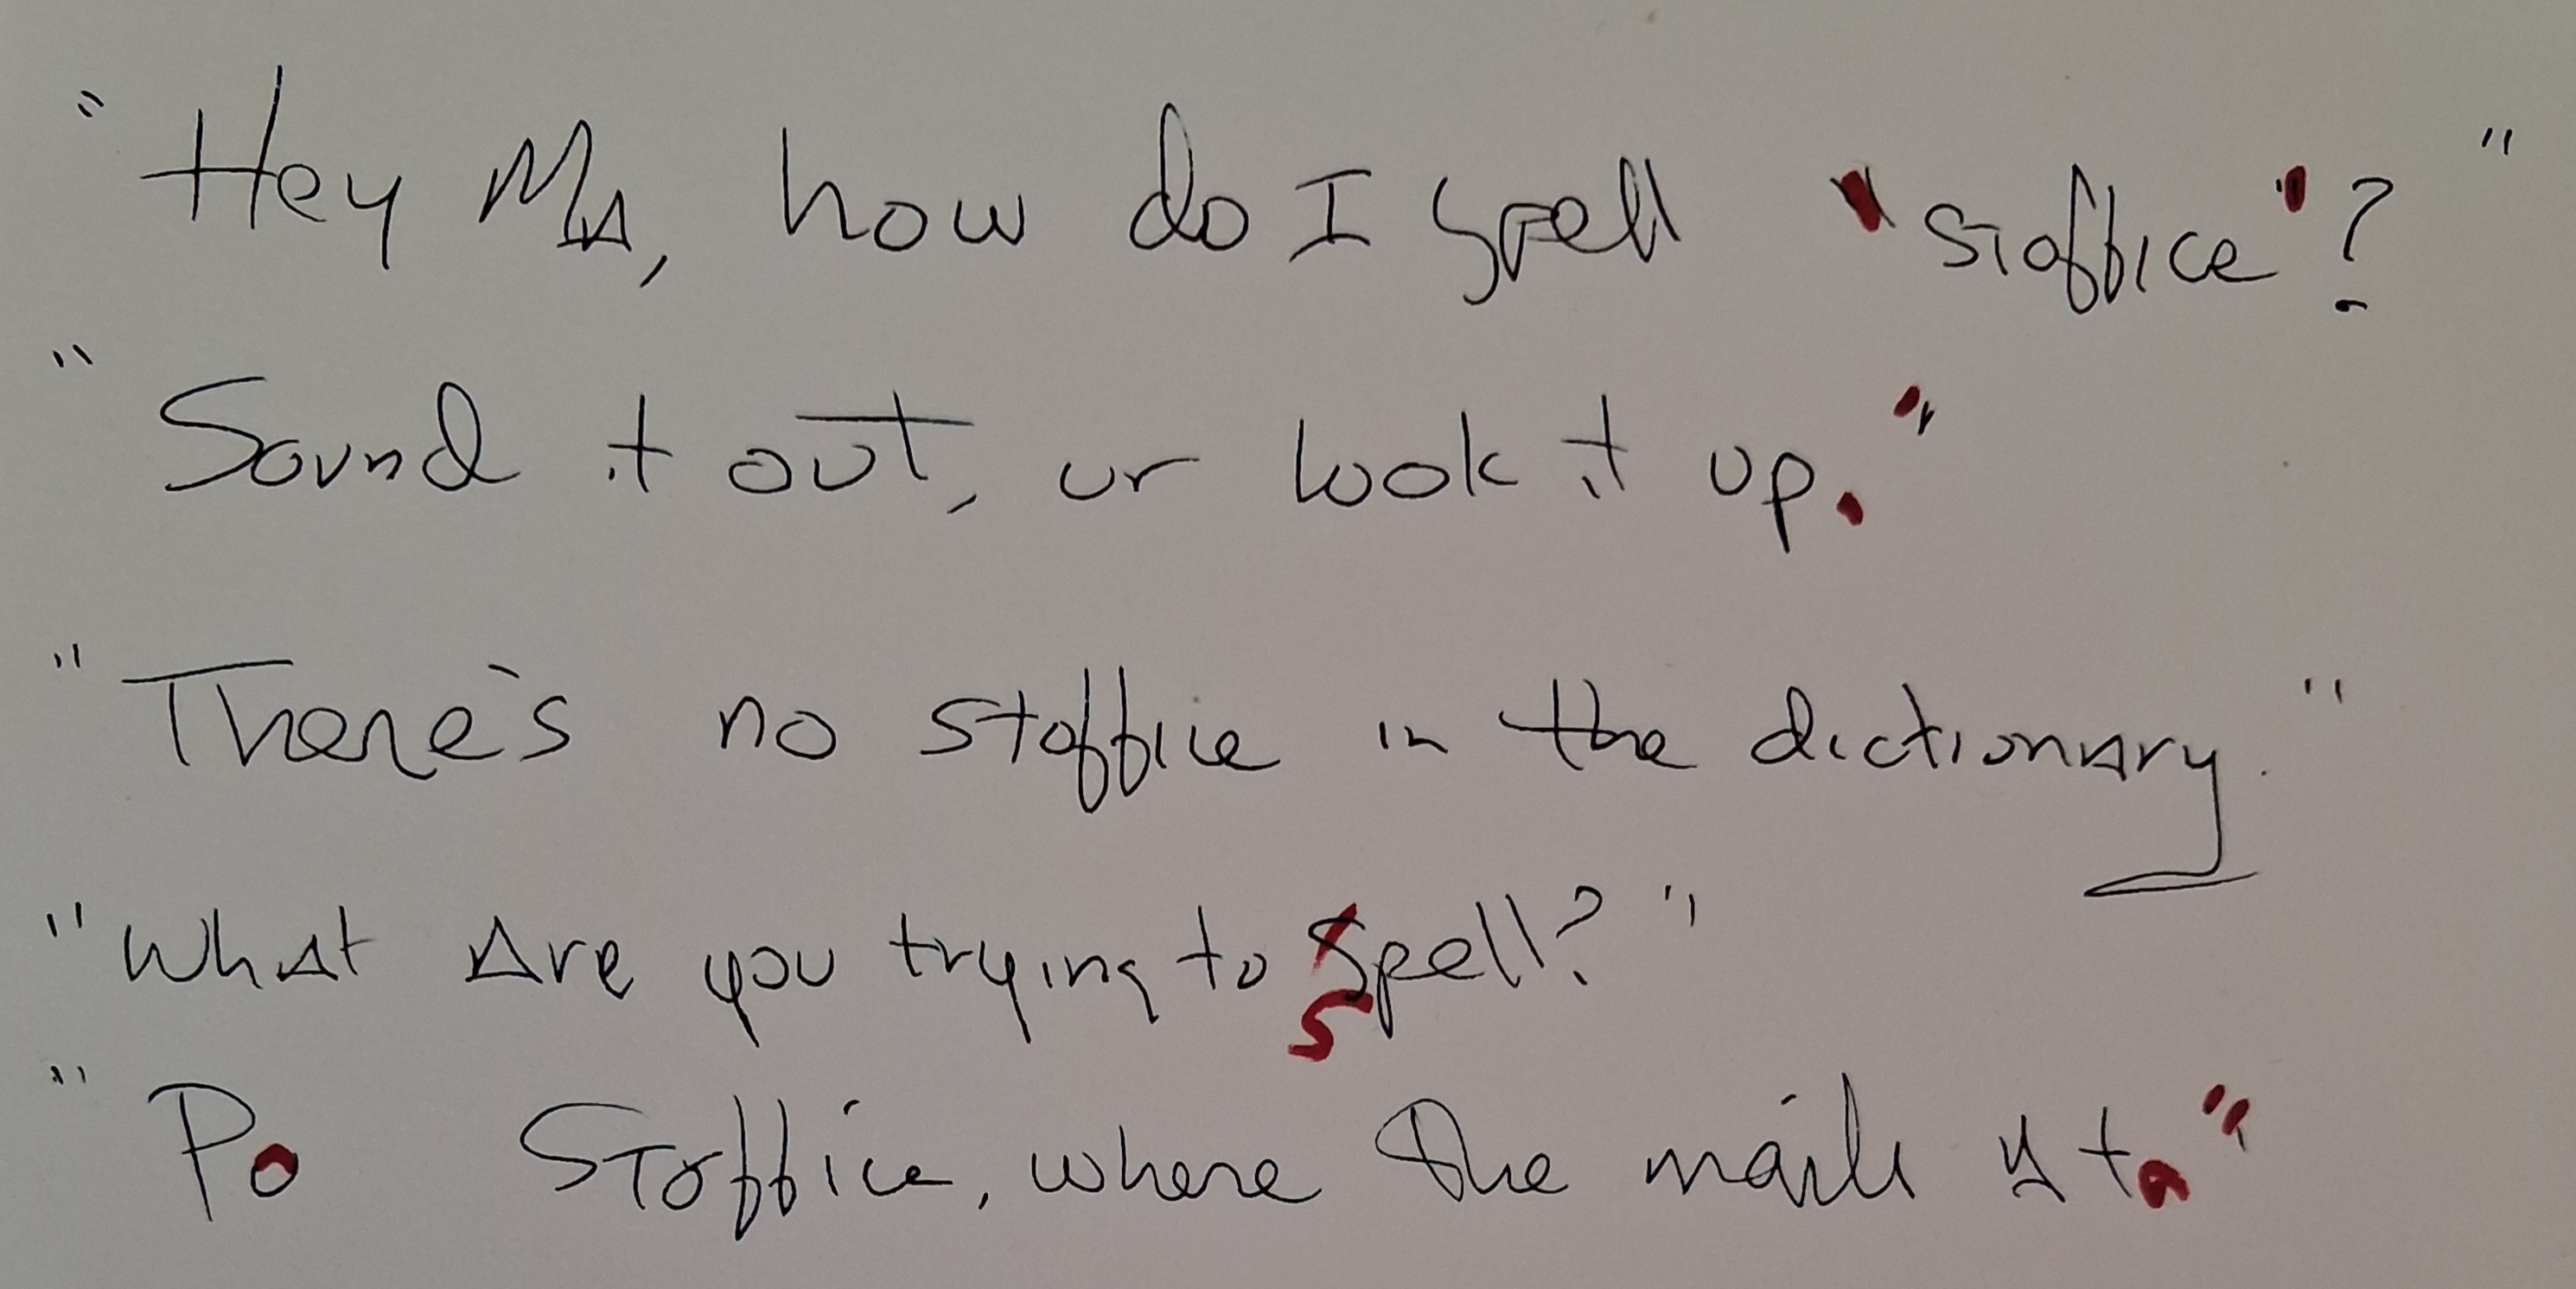 "Hey MA, how do I spell 'stoffice'?"
"Sound it out, or look it up."
"There's no stoffice in the dictionary."
"What Are you trying to spell?"
"Po Stoffice, where the mail